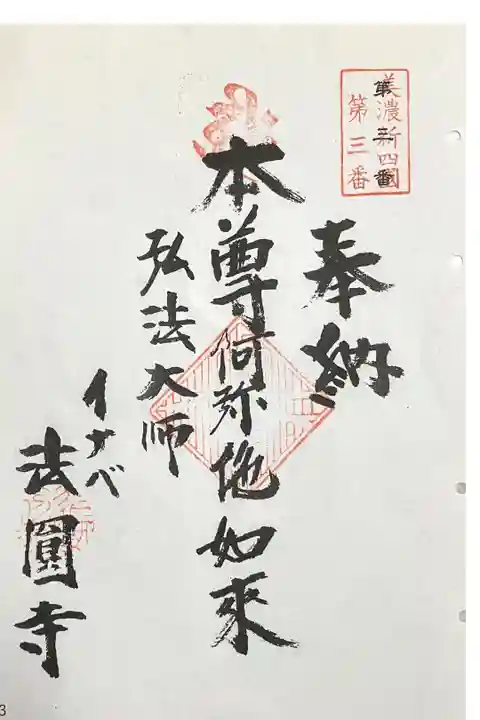 美濃新四國
第三番
第三番
奉納
本尊阿弥陀如來
弘法大师
イナベ
法圓寺
3